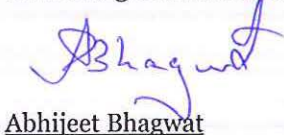 ABhagwat
Abhijeet Bhagwat